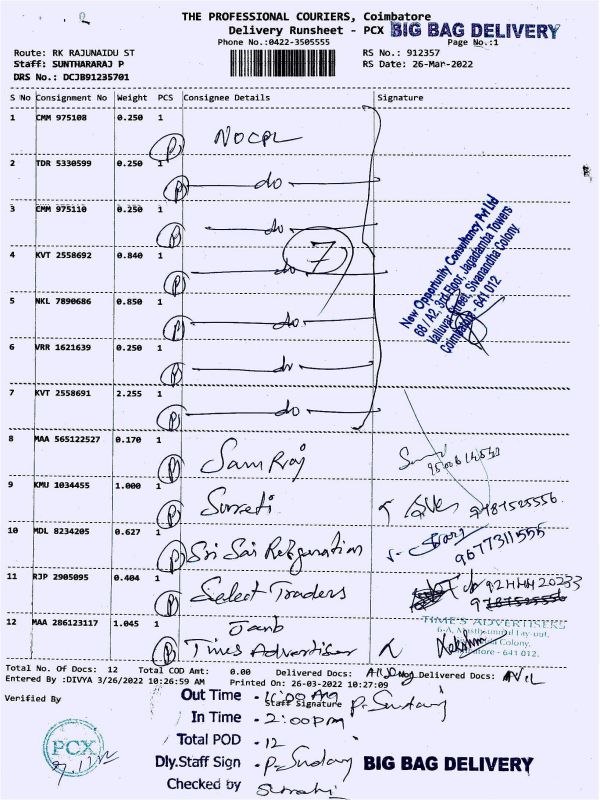 THE PROFESSIONAL COURIERS, Coimbatore
Delivery Runsheet - PCX BIG BAG DELIVERY
Phone No.:0422-3505555 Page No.:1
Route: RK RAJUNAIDU ST RS No.: 912357
Staff: SUNTHARARAJ P RS Date: 26-Mar-2022
DRS No.: DCJB91235701
S No Consignment No Weight PCS Consignee Details Signature
1 CMM 975108 0.250 1
P NOCPL
2 TDR 5330599 0.250 1
P do
3 CMM 975110 0.250 1
P do
7
4 KVT 2558692 0.840 1
P do
5 NKL 7890686 0.850 1
P do
6 VRR 1621639 0.250 1
P do
7 KVT 2558691 2.255 1
P do
New Opportunity Consultancy Pvt Ltd
68 / A2, 3rd Floor, Jagadamba Towers
Valluvar Street, Sivanandha Colony
Coimbatore - 641 012
8 MAA 565122527 0.170 1
P Sam Rraj
9 KMU 1034455 1.000 1
P 9787525556
10 MDL 8234205 0.627 1
P Sri Sai Refrigeration 9677311555
11 RJP 2905095 0.404 1
P Select Traders
12 MAA 286123117 1.045 1
P Times Advertiser
TIME'S ADVERTISERS
6-A, Lay-out,
Colony,
641 012.
Total No. Of Docs: 12 Total COD Amt: 0.00 Delivered Docs: Non Delivered Docs: NIL
Entered By :DIVYA 3/26/2022 10:26:59 AM Printed On: 26-03-2022 10:27:09
Verified By Staff Signature
Out Time - 11:00 AM
In Time - 2:00pm
Total POD - 12
Dly.Staff Sign - BIG BAG DELIVERY
Checked by
PCX